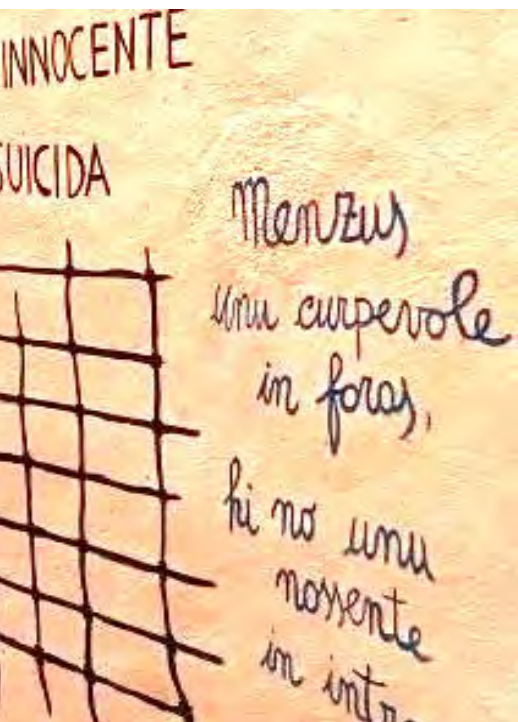 INNOCENTE
SUICIDA
Menzus
unu curpevole
in foras,
hi no unu
nossente
in intro